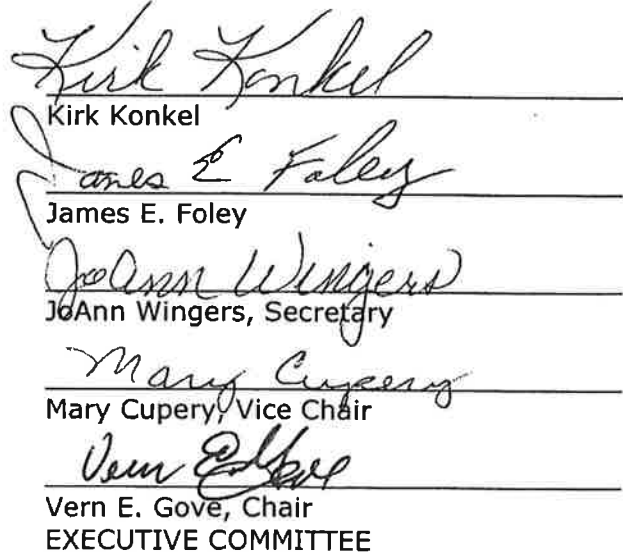 Kirk Konkel
Kirk Konkel
James E Foley
James E. Foley
JoAnn Wingers
JoAnn Wingers, Secretary
Mary Cupery
Mary Cupery, Vice Chair
Vern E. Gove
Vern E. Gove, Chair
EXECUTIVE COMMITTEE